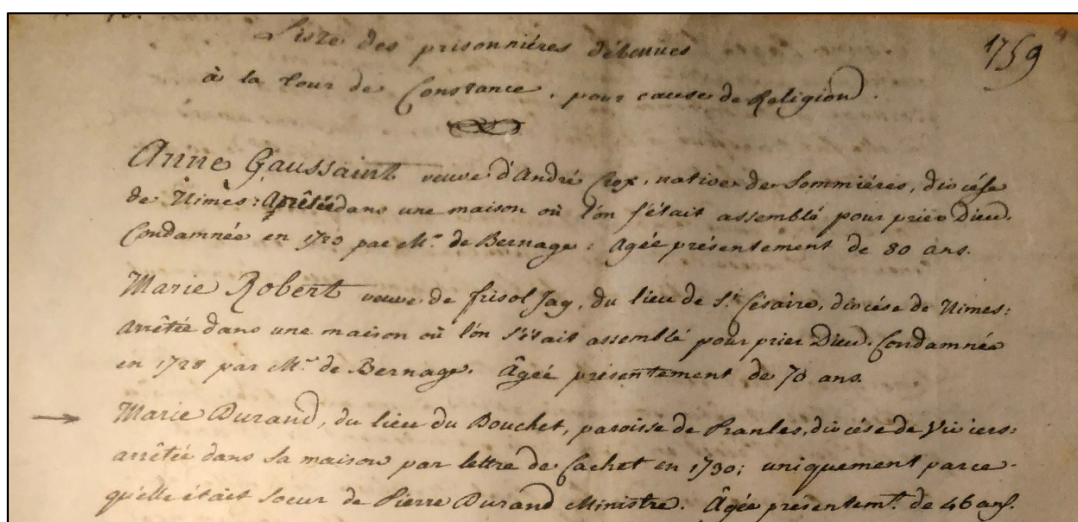 Liste des prisonniéres détenues
1759
à la tour de Constance, pour cause de Religion.
Anne Gaussaint veuve d'André Crox, native de Sommiéres, diocése
de Nimes: Arrêtée dans une maison où l'on s'était assemblé pour prier Dieu.
Condamnée en 1723 par Mr. de Bernage: Agée présentement de 80 ans.
Marie Robert veuve de frisol Jay, du lieu de St. Césaire, diocése de Nimes:
Arrêtée dans une maison où l'on s'était assemblé pour prier Dieu. Condamnée
en 1728 par Mr. de Bernage. Âgée présentement de 70 ans.
Marie Durand, du lieu du Bouchet, paroisse de Pranles, diocése de Viviers:
arrêtée dans sa maison par lettre de Cachet en 1730; uniquement parce
qu'elle était soeur de Pierre Durand Ministre. Âgée présentemt. de 46 ans.